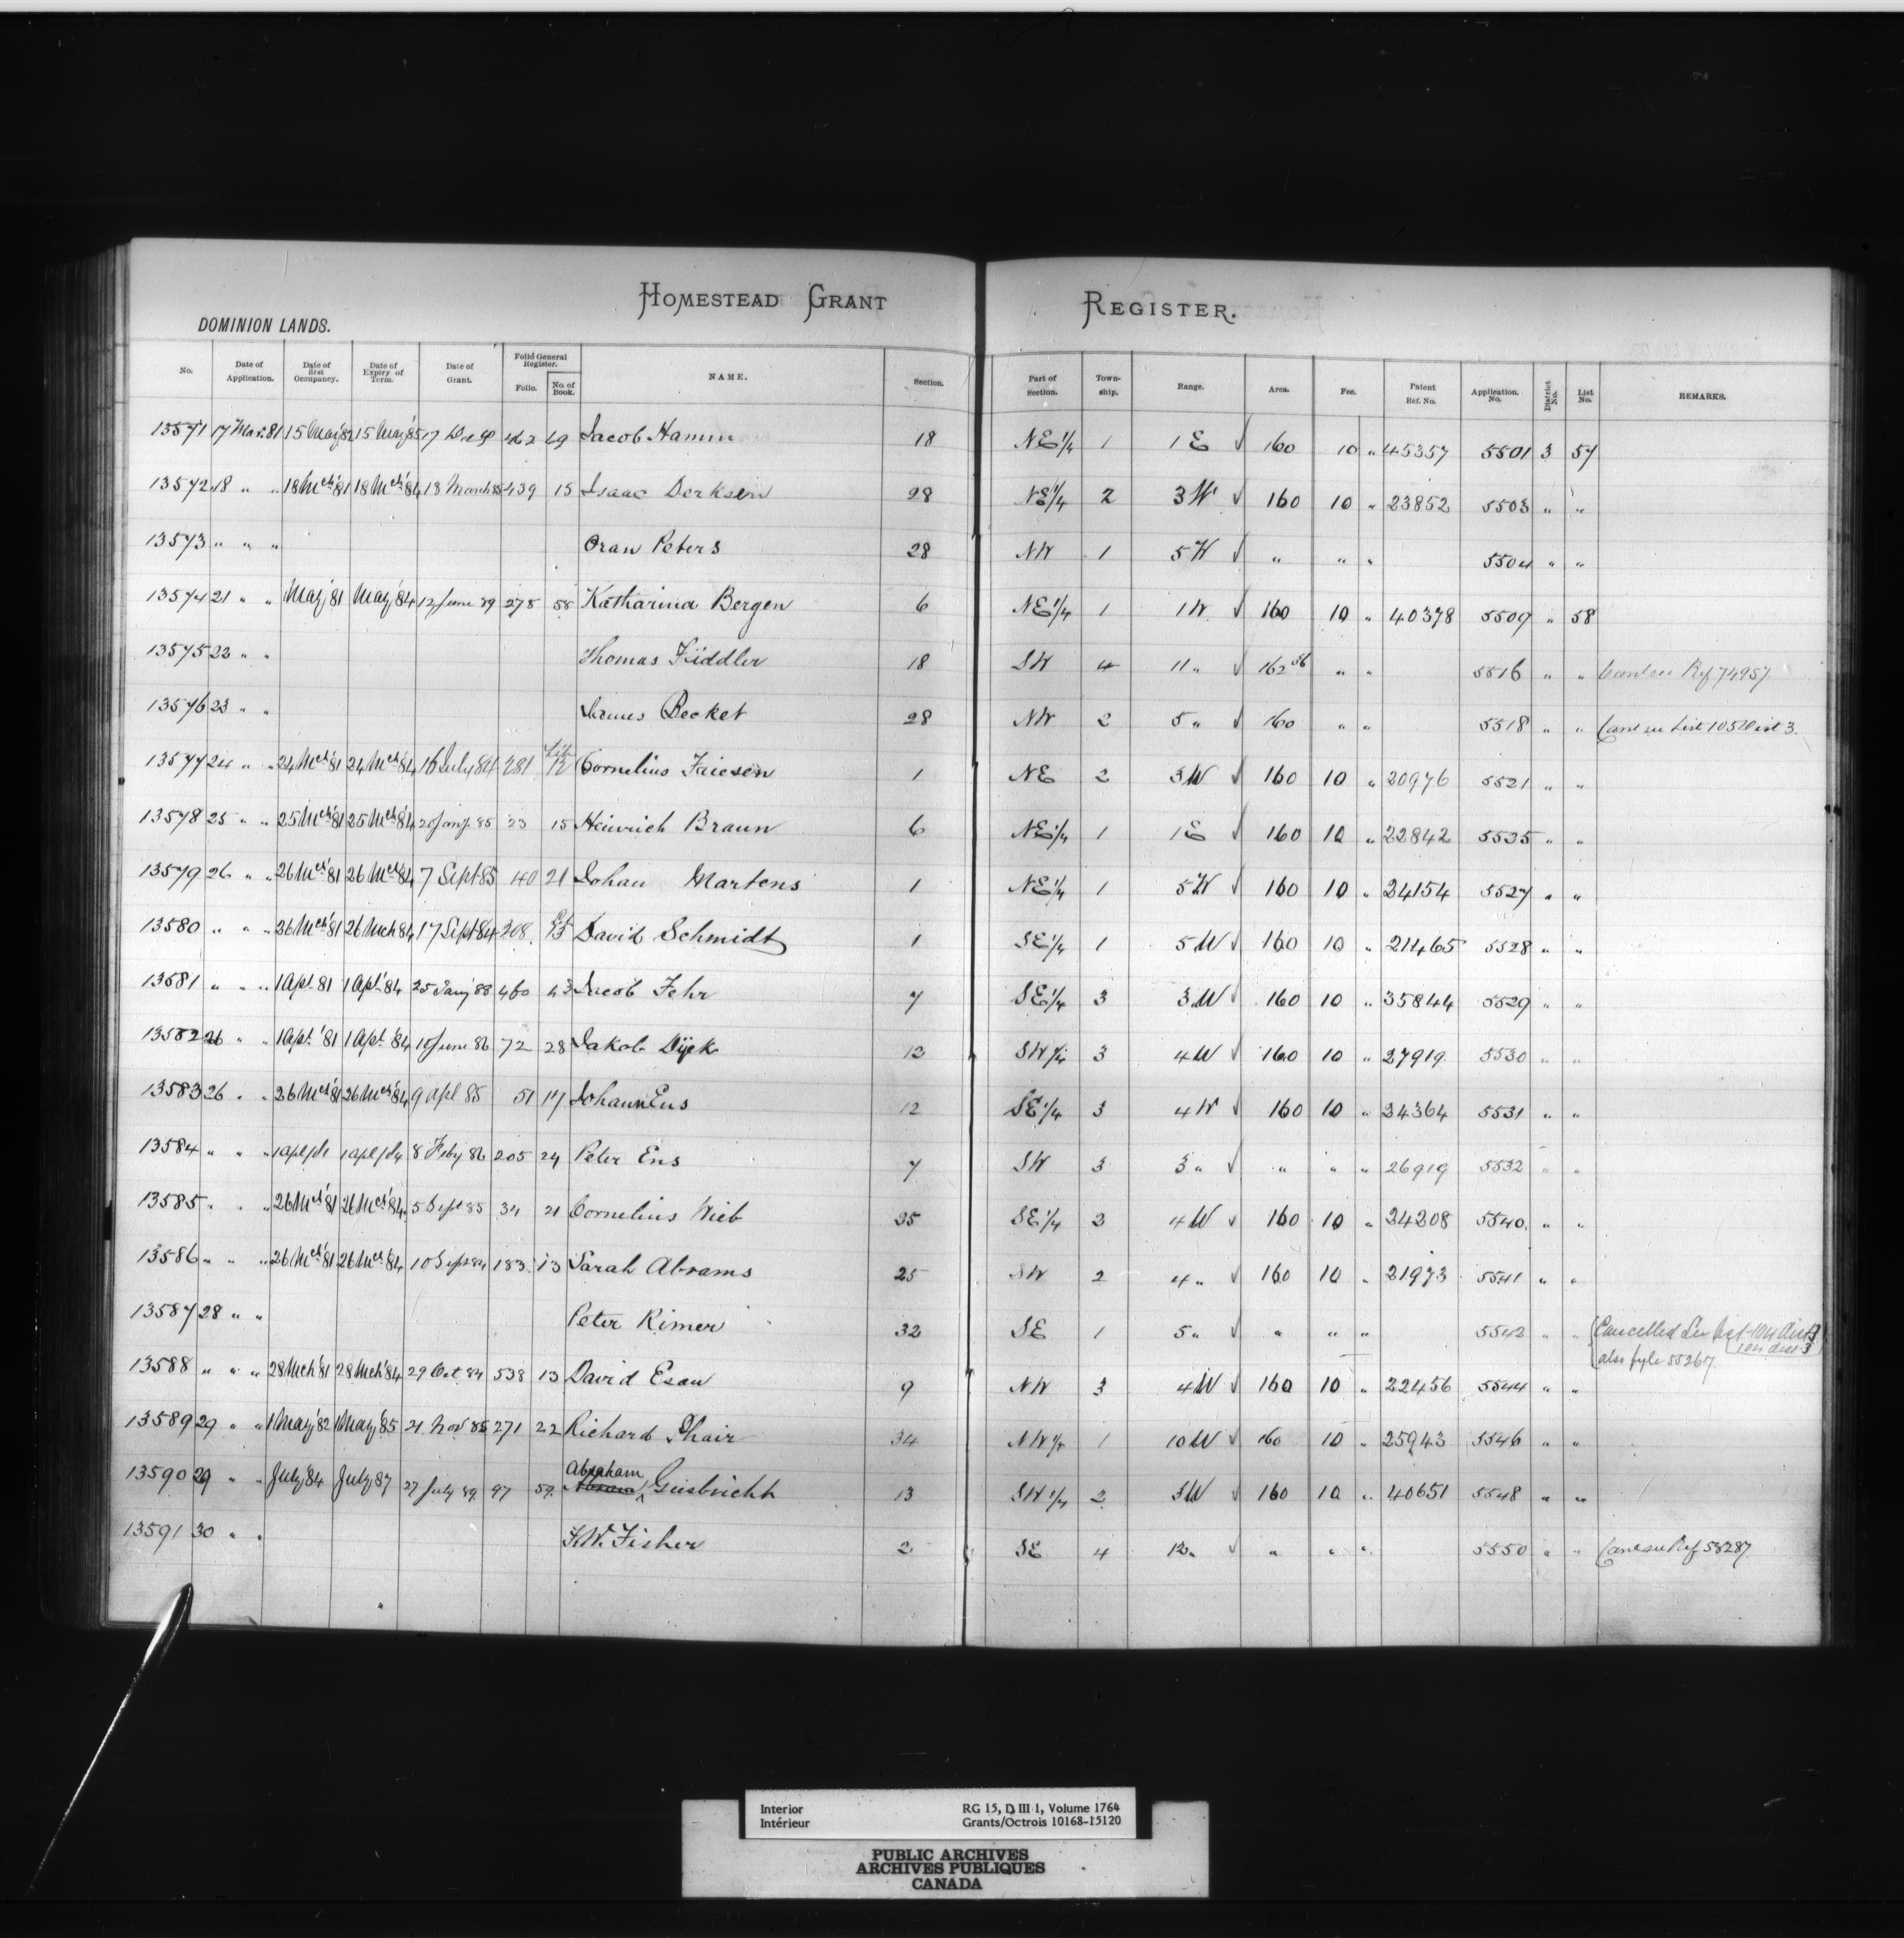 HOMESTEAD GRANT REGISTER.
DOMINION LANDS.
No. Date of Application. Date of first Occupancy. Date of Expiry of Term. Date of Grant. Folio General Register. Folio. No. of Book. NAME. Section. Part of Section. Township. Range. Area. Fee. Patent Ref. No. Application. No. District No. List No. REMARKS.
13571 17 Mar. 81 15 May '82 15 May '85 17 462 49 Jacob Hamm 18 NE 1/4 1 1 E √ 160 10 " 45357 5501 3 57
13572 18 " " 18 Mch '81 18 Mch '84 18 March 85 439 15 Isaac Derksen 28 NE 1/4 2 3 W √ 160 10 " 23852 5503 " "
13573 " " " Oran Peters 28 NW 1 5 W √ " " " 5504 " "
13574 21 " " May '81 May '84 12 June 89 278 58 Katharina Bergen 6 NE 1/4 1 1 W √ 160 10 " 40378 5509 " 58
13575 22 " " Thomas Fiddler 18 SW 4 11 " √ 162 56 " " 5516 " " Canc see Ref 74957
13576 23 " " James Becket 28 NW 2 5 " √ 160 " " 5518 " " Canc see List 105 Dist 3.
13577 24 " " 24 Mch '81 24 Mch '84 16 July 84 281 12 Cornelius Friesen 1 NE 2 3 W √ 160 10 " 20976 5521 " "
13578 25 " " 25 Mch '81 25 Mch '84 20 Jany. 85 23 15 Heinrich Braun 6 NE 1/4 1 1 E √ 160 10 " 22842 5535 " "
13579 26 " " 26 Mch '81 26 Mch 84 7 Sept 85 40 21 Johan Martens 1 NE 1/4 1 5 W √ 160 10 " 24154 5527 " "
13580 " " " 26 Mch '81 26 Mch 84 17 Sept 84 208 David Schmidt 1 SE 1/4 1 5 W √ 160 10 " 21465 5528 " "
13581 " " " 1 Apl. 81 1 Apl. 84 25 Jany 88 460 43 Jacob Fehr 7 SE 1/4 3 3 W √ 160 10 " 35844 5529 " "
13582 26 " " 1 Apl. '81 1 Apl. '84 10 June 86 72 28 Jakob Dyck 12 SW 1/4 3 4 W √ 160 10 " 27919 5530 " "
13583 26 " " 26 Mch '81 26 Mch '84 9 Apl 85 51 17 Johann Ens 12 SE 1/4 3 4 W √ 160 10 " 24364 5531 " "
13584 " " " 1 Apl/81 1 Apl/84 8 Feby 86 205 24 Peter Ens 7 SW 3 3 " √ " " " 26919 5532 " "
13585 " " " 26 Mch '81 26 Mch '84 5 Sept 85 34 21 Cornelius Wieb 25 SE 1/4 2 4 W √ 160 10 " 24208 5540 " "
13586 " " " 26 Mch '81 26 Mch '84 10 Sept 84 183 13 Sarah Abrams 25 SW 2 4 " √ 160 10 " 21973 5541 " "
13587 28 " " Peter Rimer 32 SE 1 5 " √ " " " 5542 " " Cancelled See List 104 Dist 3
also fyle 55267
13588 " " " 28 Mch '81 28 Mch '84 29 Oct 84 538 13 David Esau 9 NW 3 4 W √ 160 10 " 22456 5544 " "
13589 29 " " 1 May '82 1 May '85 21 Nov 85 271 22 Richard Phair 34 NW 1/4 1 10 W √ 160 10 " 25943 5546 " "
13590 29 " " July '84 July 87 27 July 89 97 59 Abraham Giesbricht 13 SW 1/4 2 3 W √ 160 10 " 40651 5548 " "
13591 30 " " F.W. Fisher 2 SE 4 12 " √ " " " 5550 " " Canc see Ref 58287
Interior RG 15, D III 1, Volume 1764
Intérieur Grants/Octrois 10168-15120
PUBLIC ARCHIVES
ARCHIVES PUBLIQUES
CANADA